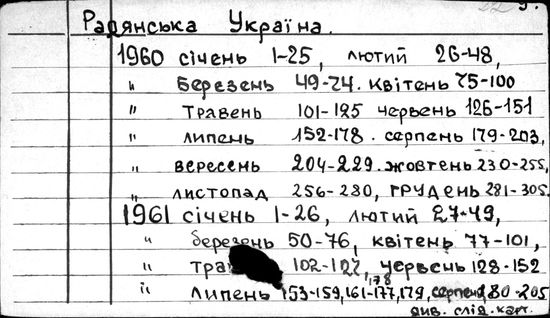 Радянська Україна.
1960 січень 1-25, лютий 26-48,
" березень 49-74. квітень 75-100
" травень 101-125 червень 126-151
" липень 152-178. серпень 179-203,
" вересень 204-229. жовтень 230-255,
" листопад 256-280, грудень 281-305.
1961 січень 1-26, лютий 27-49,
" березень 50-76, квітень 77-101,
" 102-127, червень 128-152
" липень 153-159, 161-177, 178, 179, серпень 180-205
див. слід. карт.